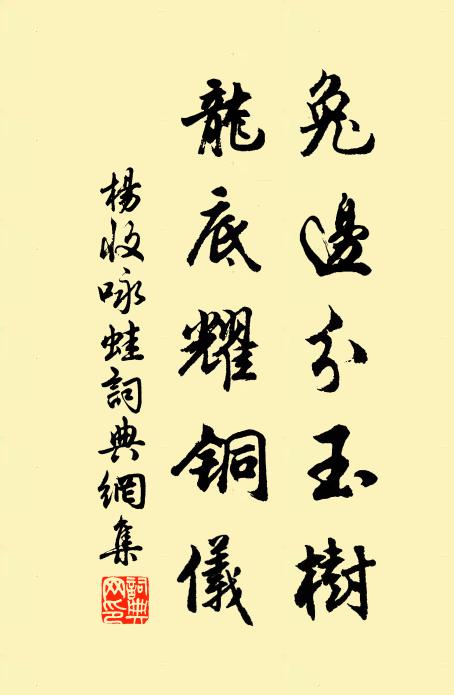 兔邊分玉樹
龍底耀銅儀
楊收咏蛙詞典網集
詞典網印